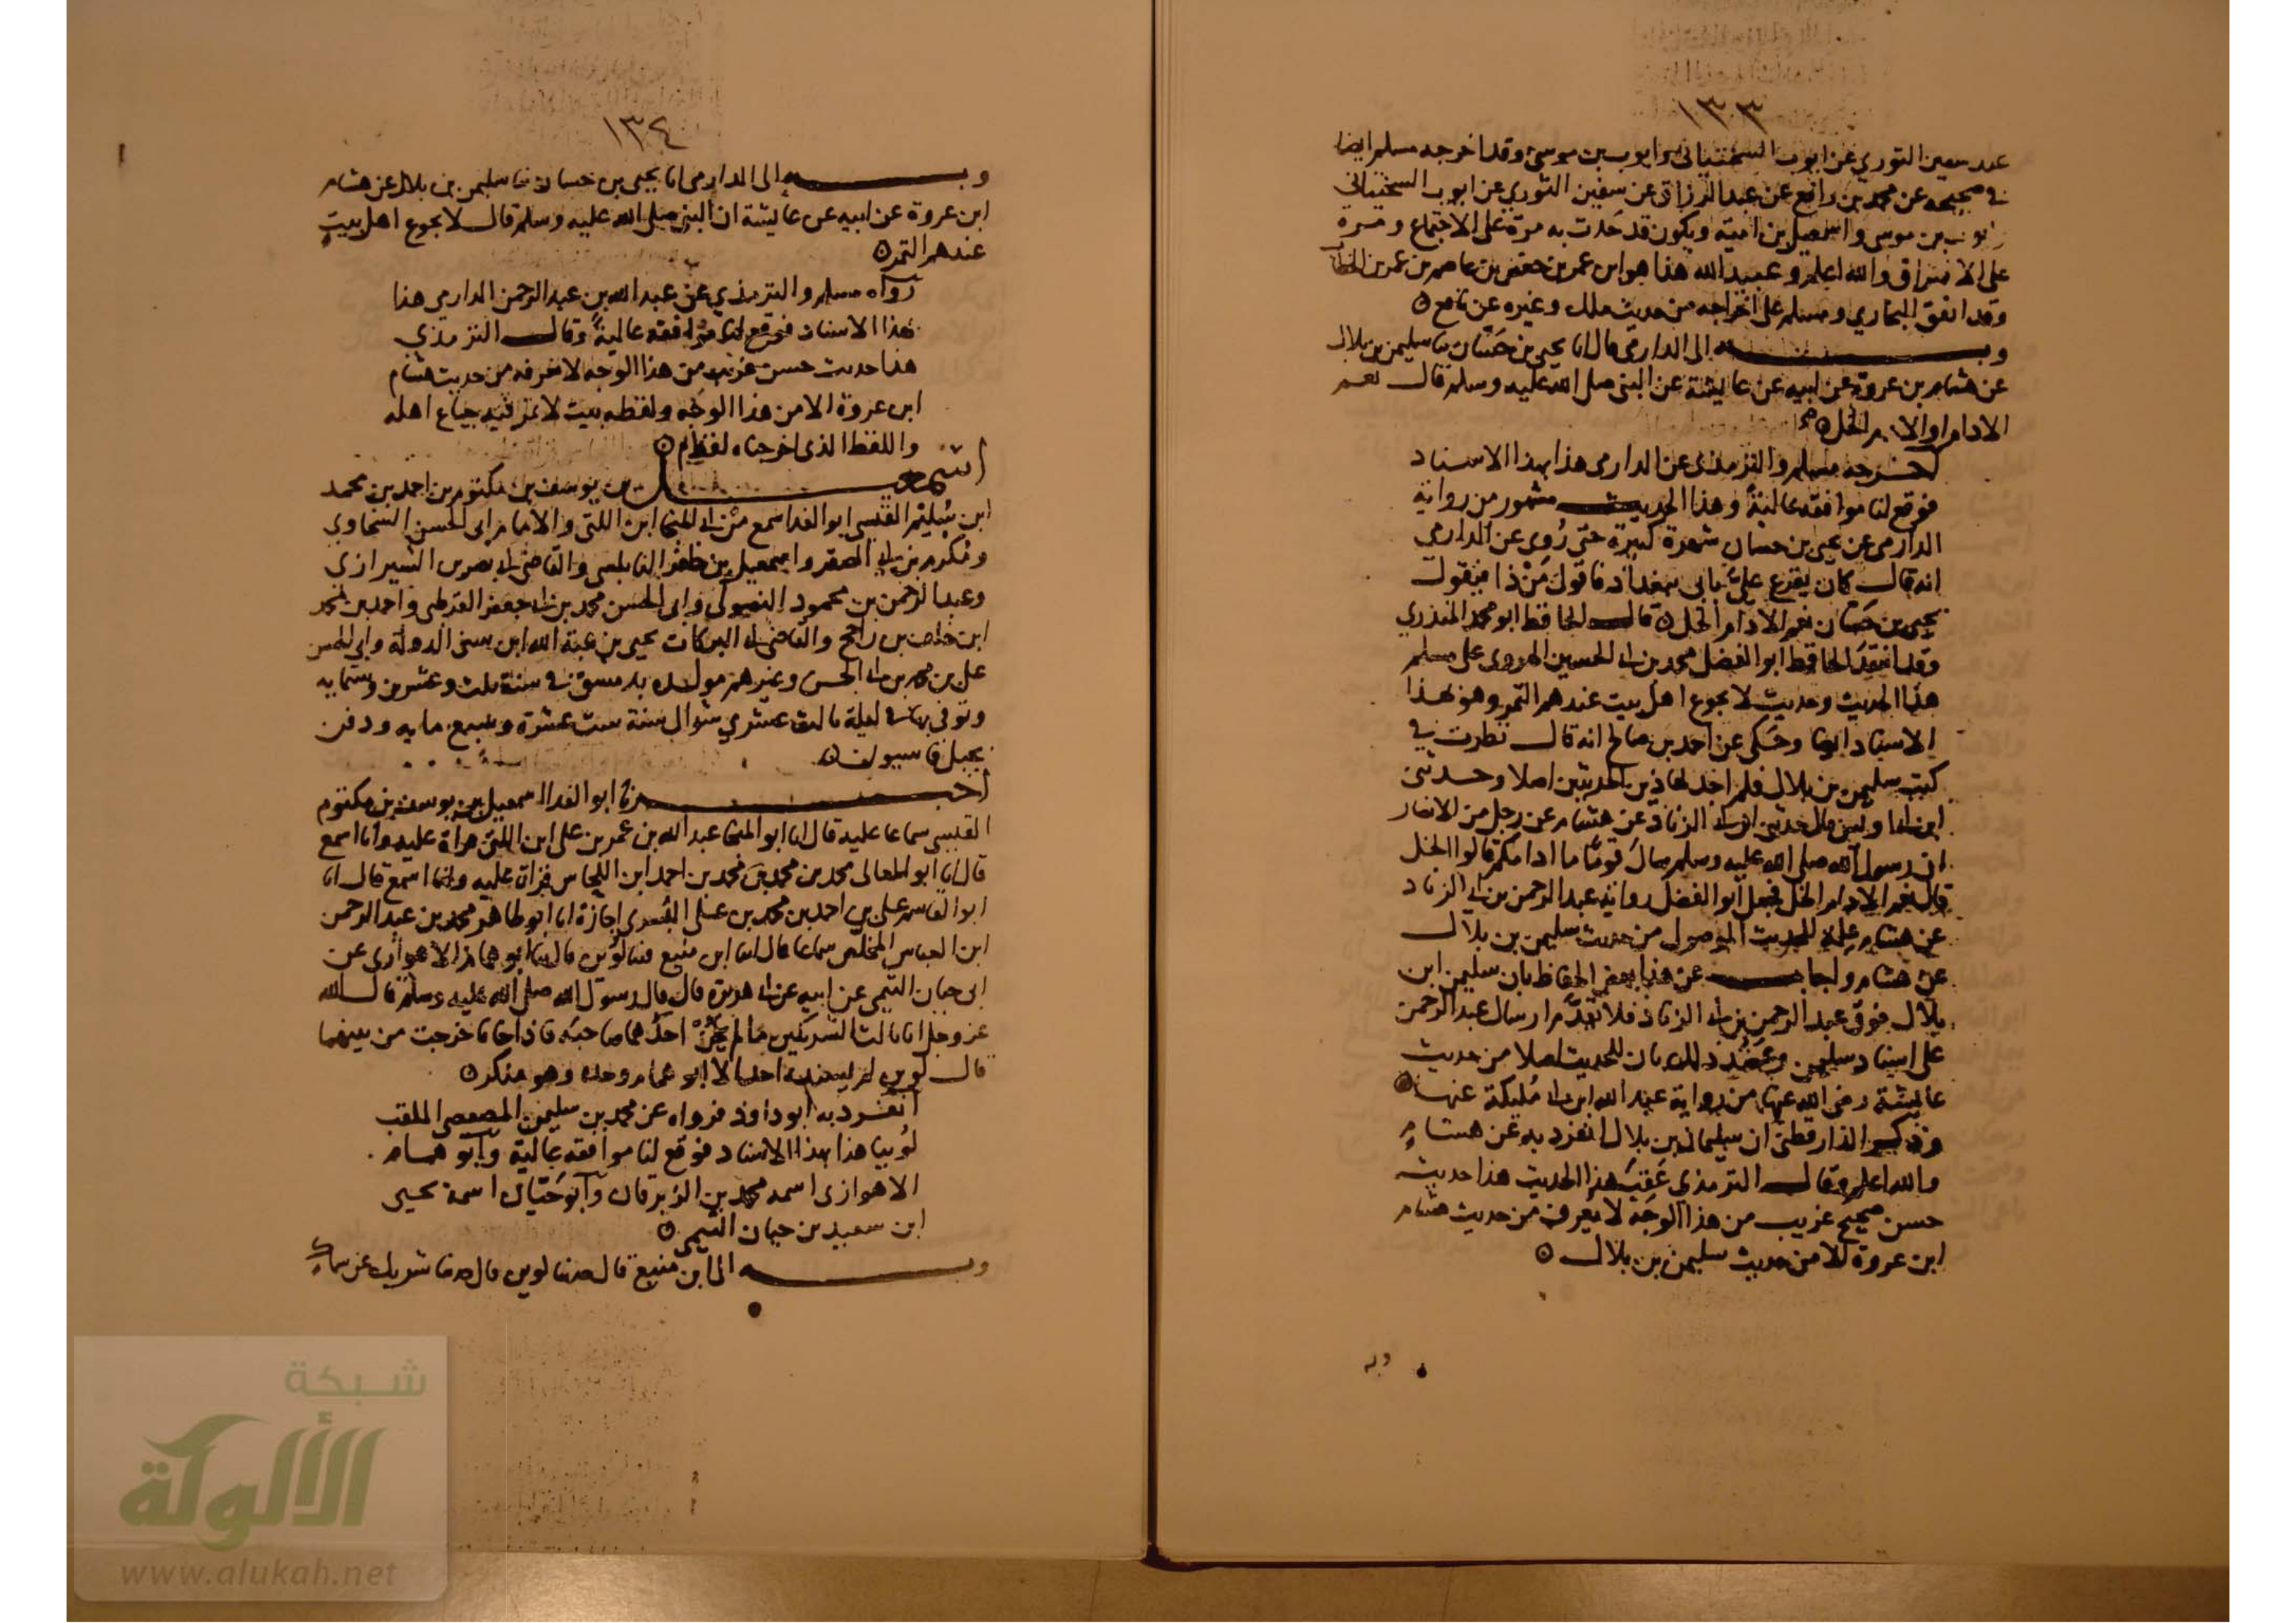 ١٣٣
عند سفين الثوري عن ايوب السختياني وايوب بن موسى وقد اخرجه مسلم ايضا
في صحيحه عن محمد بن رافع عن عبد الرزاق عن سفين الثوري عن ايوب السختياني
وايوب بن موسى واسمعيل بن امية ويكون قد حدث به مرة على الاجتماع ومرة
على الافتراق والله اعلم وعبيد الله هذا هو ابن عمر بن حفص بن عاصم بن عمر بن الخطاب
وقد اتفق البخاري ومسلم على اخراجه من حديث ملك وغيره عن نافع ه
وبه الى الدارمي قال انا يحيى بن حسان ثنا سليمن بن بلال
عن هشام بن عروة عن ابيه عن عايشة عن النبي صلى الله عليه وسلم قال نعم
الادام او الادم الخل ه
اخرجه مسلم والترمذي عن الدارمي هذا بهذا الاسناد
فوقع لنا موافقة عالية وهذا الحديث مشهور من رواية
الدارمي عن يحيى بن حسان شهرة كبيرة حتى رُوي عن الدارمي
انه قال كان يقرع عليّ بابي ببغداد فاقول مَنْ ذا فيقول
يحيى بن حسان نعم الادام الخل ه قال الحافظ ابو محمد المنذري
وقد انتقد الحافظ ابو الفضل محمد بن ابي الحسين الهروي على مسلم
هذا الحديث وحديث لا يجوع اهل بيت عندهم التمر وهو بهذا
الاسناد ايضا وحكى عن احمد بن صالح انه قال نظرت في
كتب سليمن بن بلال فلم اجد لهاذين الحديثين اصلا وحدثني
ابن ابي اويس قال حدثني ابن ابي الزناد عن هشام عن رجل من الانصار
ان رسول الله صلى الله عليه وسلم سال قوما ما ادامكم قالوا الخل
قال نعم الادام الخل فجعل ابو الفضل رواية عبد الرحمن بن ابي الزناد
عن هشام علة للحديث الموصول من حديث سليمن بن بلال
عن هشام واجاب عن هذا بعض الحفاظ بان سليمن ابن
بلال فوق عبد الرحمن بن ابي الزناد فلا تقدَّم ارسال عبد الرحمن
على اسناد سليمن وعضد ذلك بان للحديث اصلا من حديث
عايشة رضي الله عنها من رواية عبد الله ابن ابي مُليكة عنها ه
وذكر الدارقطني ان سليمان بن بلال انفرد به عن هشام
والله اعلم وقال الترمذي عقيب هذا الحديث هذا حديث
حسن صحيح غريب من هذا الوجه لا يعرف من حديث هشام
ابن عروة الا من حديث سليمن بن بلال ه
وبه
١٣٤
وبه الى الدارمي انا يحيى بن حسان ثنا سليمن بن بلال عن هشام
ابن عروة عن ابيه عن عايشة ان النبي صلى الله عليه وسلم قال لا يجوع اهل بيت
عندهم التمر ه
رواه مسلم والترمذي عن عبد الله بن عبد الرحمن الدارمي هذا
بهذا الاسناد فوقع لنا موافقة عالية وقال الترمذي
هذا حديث حسن غريب من هذا الوجه لا نعرفه من حديث هشام
ابن عروة الا من هذا الوجه ولفظه بيت لا تمر فيه جياع اهله
واللفظ الذي اخرجناه لفظ م ه
اسمعيل بن يوسف بن مكتوم بن احمد بن محمد
ابن سُليم القيسي ابو الفدا سمع من ابي المنجا ابن اللتي والامام ابي الحسن السخاوي
ومُكرم بن ابي الصقر واسمعيل بن ظفر النابلسي والقاضي ابي نصر بن الشيرازي
وعبد الرحمن بن محمود وابي الحسن محمد بن ابي جعفر القرطبي واحمد بن محمد
ابن خلف بن راجح والقاضي ابي البركات يحيى بن هبة الله ابن سني الدولة وابي الحسن
علي بن محمد بن ابي الحسن وغيرهم مولده بدمشق في سنة ثلث وعشرين وستمايه
وتوفي بها في ليلة ثالث عشري شوال سنة ست عشرة وسبع مايه ودفن
بجبل قاسيون ه
اخبرنا ابو الفدا اسمعيل بن يوسف بن مكتوم
القيسي سماعا عليه قال انا ابو المنجا عبد الله بن عمر بن علي ابن اللتي قراة عليه وانا اسمع
قال انا ابو المعالي محمد بن محمد بن محمد بن احمد ابن اللحاس قراة عليه وانا اسمع قال انا
ابو القاسم علي بن احمد بن محمد بن علي البُسري اجازة انا ابو طاهر محمد بن عبد الرحمن
ابن العباس المخلص سماعا قال ثنا ابن منيع ثنا لوين قال ثنا ابو همام الاهوازي عن
ابي حيان التيمي عن ابيه عن ابي هريرة قال قال رسول الله صلى الله عليه وسلم قال الله
عز وجل انا ثالث الشريكين ما لم يخُنْ احدُهما صاحبَه فاذا خانا خرجت من بينهما
قال لوين لم يسنده احد الا ابو همام وحده وهو منكر ه
انفرد به ابو داود فرواه عن محمد بن سليمن المصيصي الملقب
لوينا هذا بهذا الاسناد فوقع لنا موافقة عالية وابو همام
الاهوازي اسمه محمد بن الزبرقان وابو حيان اسمه يحيى
ابن سعيد بن حيان التيمي ه
وبه الى ابن منيع قال حدثنا لوين قال حدثنا شريك عن سماك
شبكة
الألوكة
www.alukah.net